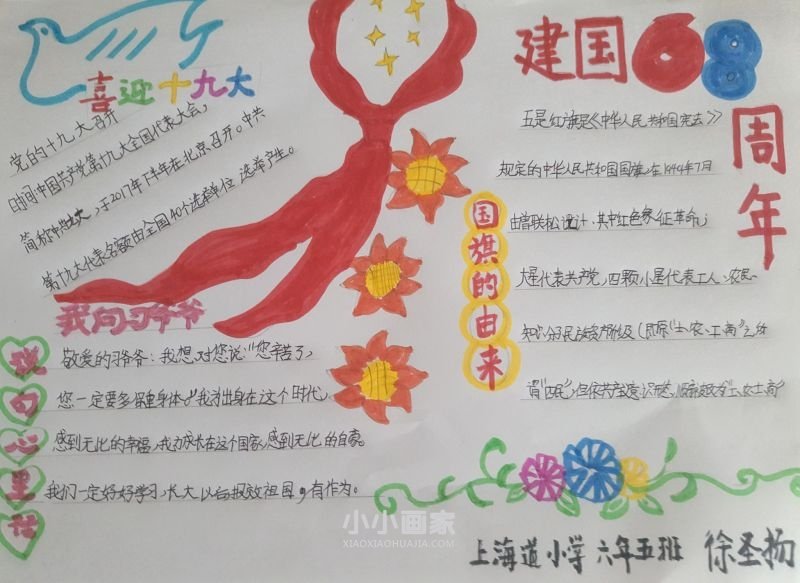 喜迎十九大
党的十九大召开
时间中国共产党第十九大全国代表大会,
简称中共十九大,于2017年下半年在北京召开。中共
第十九大代表名额由全国40个选举单位选举产生。
我向习爷爷
说句心里话
敬爱的习爷爷:我想对您说:“您辛苦了,
您一定要多保重身体。”我为出身在这个时代,
感到无比的幸福,我为成长在这个国家,感到无比的自豪。
我们一定好好学习,长大以后报效祖国,有作为。
建国68周年
国旗的由来
五星红旗是《中华人民共和国宪法》
规定的中华人民共和国国旗,在1949年7月
由曾联松设计、其中红色象征革命;
大星代表共产党,四颗小星代表工人、农民、
知识分子民族资产阶级
小小画家
XIAOXIAOHUAJIA.COM
上海道小学 六年五班 徐圣扬